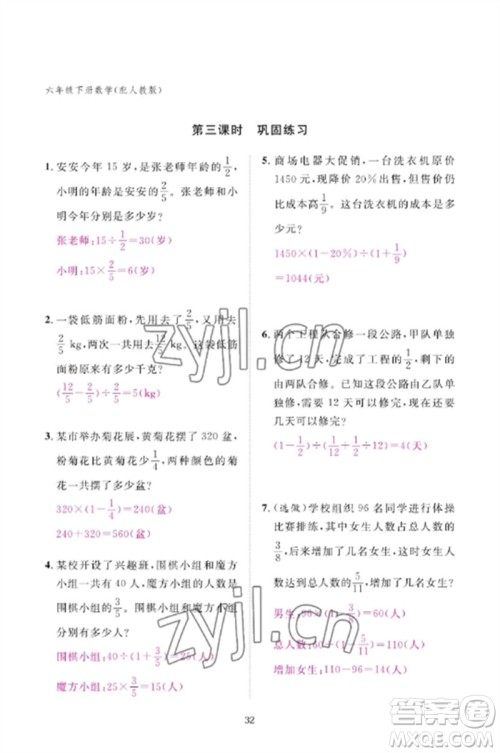 六年级下册数学(配人教版)
第三课时 巩固练习
1. 安安今年 15 岁,是张老师年龄的1/2,
小明的年龄是安安的2/5。张老师和小
明今年分别是多少岁?
张老师:15÷1/2=30(岁)
小明:15×2/5=6(岁)
2. 一袋低筋面粉,先用去了
2/5 kg。
面粉原来有多少千克?
3. 某市举办菊花展,黄菊花摆了 320 盆,
粉菊花比黄菊花少1/4,两种颜色的菊
花一共摆了多少盆?
320×(1-1/4)=240(盆)
240+320=560(盆)
4. 某校开了兴趣班,围棋小组和魔方小
组一共有 40 人,魔方小组的人数是
围棋小组的3/5。两个小组分别有多
少人?
围棋小组:
魔方小组:25×3/5=15(人)
5. 商场电器大促销,一台洗衣机原价
1450 元,现降价 20%出售,售价仍
比成本高1/9。这台洗衣机的成本是多
少元?
1450×(1-20%)÷(1+1/9)
=1044(元)
6. 两个工程队合修一段公路,甲队单独
修了 12 天,完成了工程的1/2,剩下的
由两队合修。这段公路由乙队单独
修 12 天可以修完。两队合修还要
几天可以修完?
7. (选做)学校组织 96 名同学进行体操
比赛排练,其中女生人数占总人数的
3/8,后来增加了几名女生,女生人
数达到总人数的5/11,增加了几名女生?
男生:
(人)
总人数:
=110(人)
增加女生:110-96=14(人)
32
zyjl.cn
zyjl.cn
答案圈
MXQE.COM